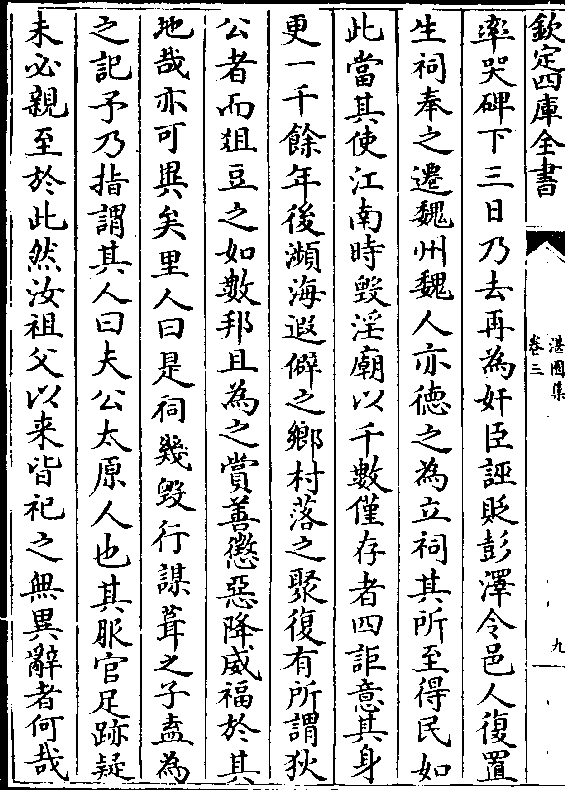 欽定四庫全書
湛園集
卷三
九
率哭碑下三日乃去再為奸臣誣貶彭澤令邑人復置
生祠奉之遷魏州魏人亦德之為立祠其所至得民如
此當其使江南時毁淫廟以千數僅存者四詎意其身
更一千餘年後瀕海遐僻之鄉村落之聚復有所謂狄
公者而俎豆之如數邦且為之賞善懲惡降威福於其
地哉亦可異矣里人曰是祠幾毁行謀葺之子盍為
之記予乃指謂其人曰夫公太原人也其服官足跡疑
未必親至於此然汝祖父以来皆祀之無異辭者何哉